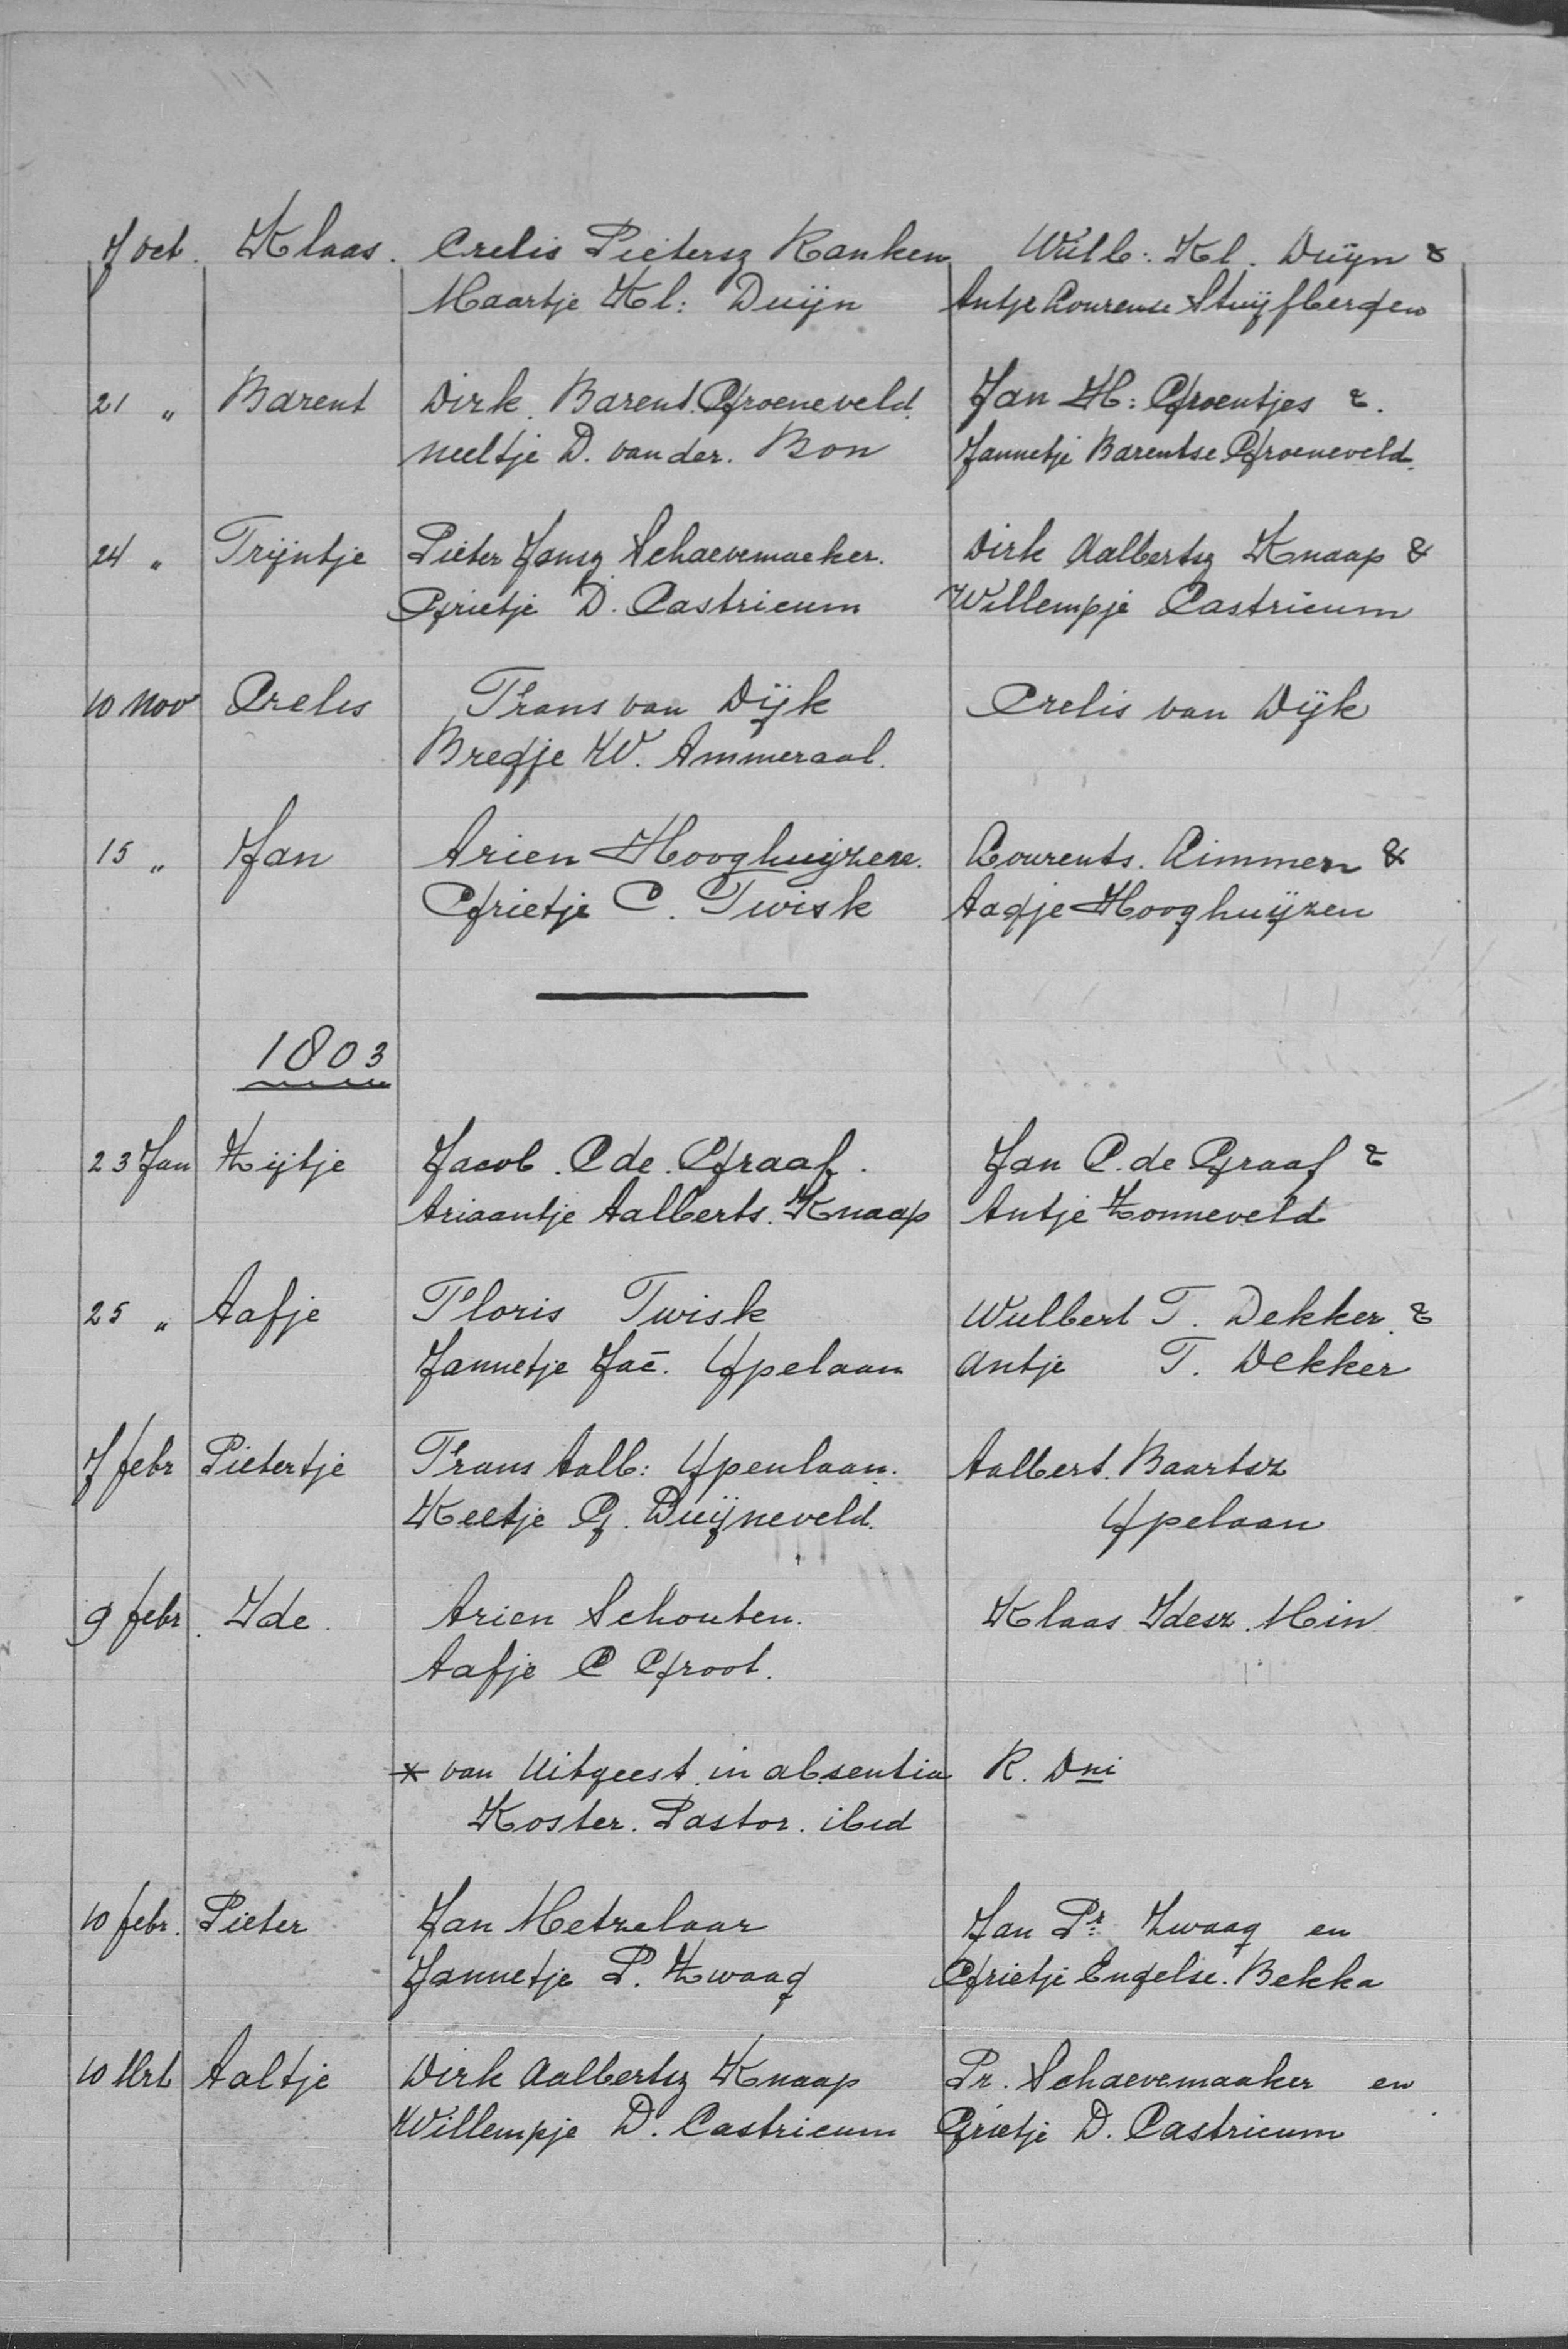 7 Oct. Klaas. Crelis Pietersz Ranken Wulb: Kl. Duijn &
Maartje Kl: Duijn Antje Lourense Stuijfbergen
21 " Barent Dirk. Barent. Groeneveld. Jan H: Groentjes &.
Neeltje D. van der. Bon Jannetje Barentse Groeneveld.
24 " Trijntje Pieter Jansz Schaevemaeker. Dirk Aalbertsz Knaap &
Grietje D. Castricum Willempje Castricum
10 Nov Crelis Frans van Dijk Crelis van Dijk
Bregje W. Ammeraal.
15 " Jan Arien Hooghuijzen. Lourents. Limmen &
Grietje C. Twisk Aagje Hooghuijzen
1803
23 Jan Zijtje Jacob. C de. Graaf. Jan C. de Graaf &
Ariaantje Aalberts. Knaap Antje Zonneveld
25 " Aafje Floris Twisk Wulbert T. Dekker. &
Jannetje Jac. IJpelaan Antje T. Dekker
7 febr Pietertje Frans Aalb: IJpenlaan. Aalbert. Baartsz
Keetje G. Duijneveld. IJpelaan
9 febr. IJde. Arien Schouten. Klaas IJdesz. Min
Aafje C Groot.
* van Uitgeest in absentia R. Dni
Koster. Pastor. ibid
10 febr. Pieter Jan Metzelaar Jan Pr. Zwaag en
Jannetje P. Zwaag Grietje Engelse. Bekka
10 Mrt Aaltje Dirk Aalbertsz Knaap Pr. Schaevemaaker en
Willempje D. Castricum Grietje D. Castricum